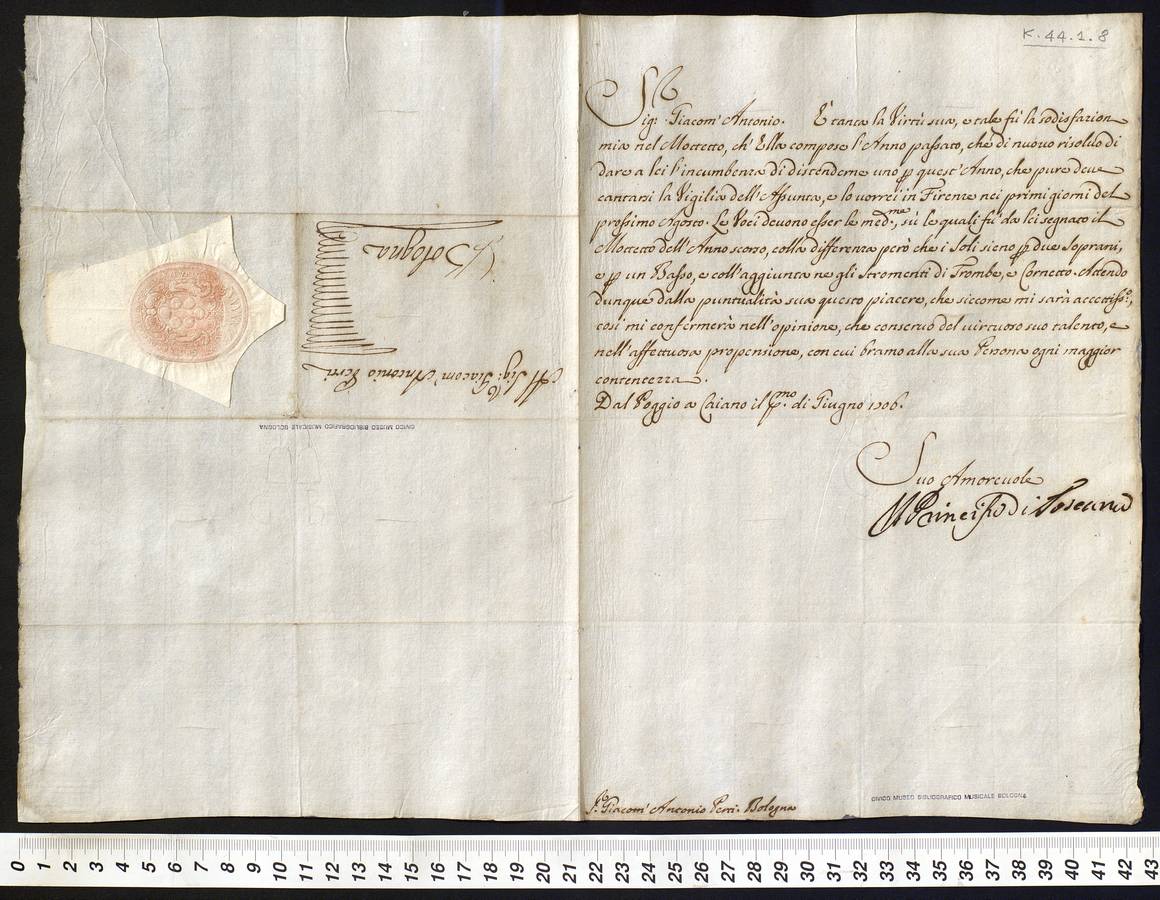 K.44.1.8
Sig.r Giacom' Antonio. È tanta la Virtù sua, e tale fù la sodisfazion
mia nel Mottetto, ch' Ella compose l'Anno passato, che di nuovo risolvo di
dare a lei l'incumbenza di distenderne uno p quest'Anno, che pure deve
cantarsi la Vigilia dell'Assunta, e lo vorrei in Firenze nei primi giorni del
prossimo Agosto. Le Voci devono esser le med.me, sù le quali fù da lei segnato il
Mottetto dell'Anno scorso, colla differenza però che i Soli sieno p due Soprani,
e p un Basso, e coll'aggiunta ne gli stromenti di Trombe, e Cornetto. Attendo
dunque dalla puntualità sua questo piacere, che siccome mi sarà accettiss.o,
così mi confermerà nell'opinione, che conservo del virtuoso suo talento, e
nell'affettuosa propensione, con cui bramo alla sua Persona ogni maggior
contentezza.
Dal Poggio a Caiano il p.mo di Giugno 1706.
Suo Amorevole
Il Principe di Toscana
S.r Giacom' Antonio Perti. Bologna
CIVICO MUSEO BIBLIOGRAFICO MUSICALE BOLOGNA
Al Sig.r Giacom' Antonio Perti
Bologna
CIVICO MUSEO BIBLIOGRAFICO MUSICALE BOLOGNA
0 1 2 3 4 5 6 7 8 9 10 11 12 13 14 15 16 17 18 19 20 21 22 23 24 25 26 27 28 29 30 31 32 33 34 35 36 37 38 39 40 41 42 43